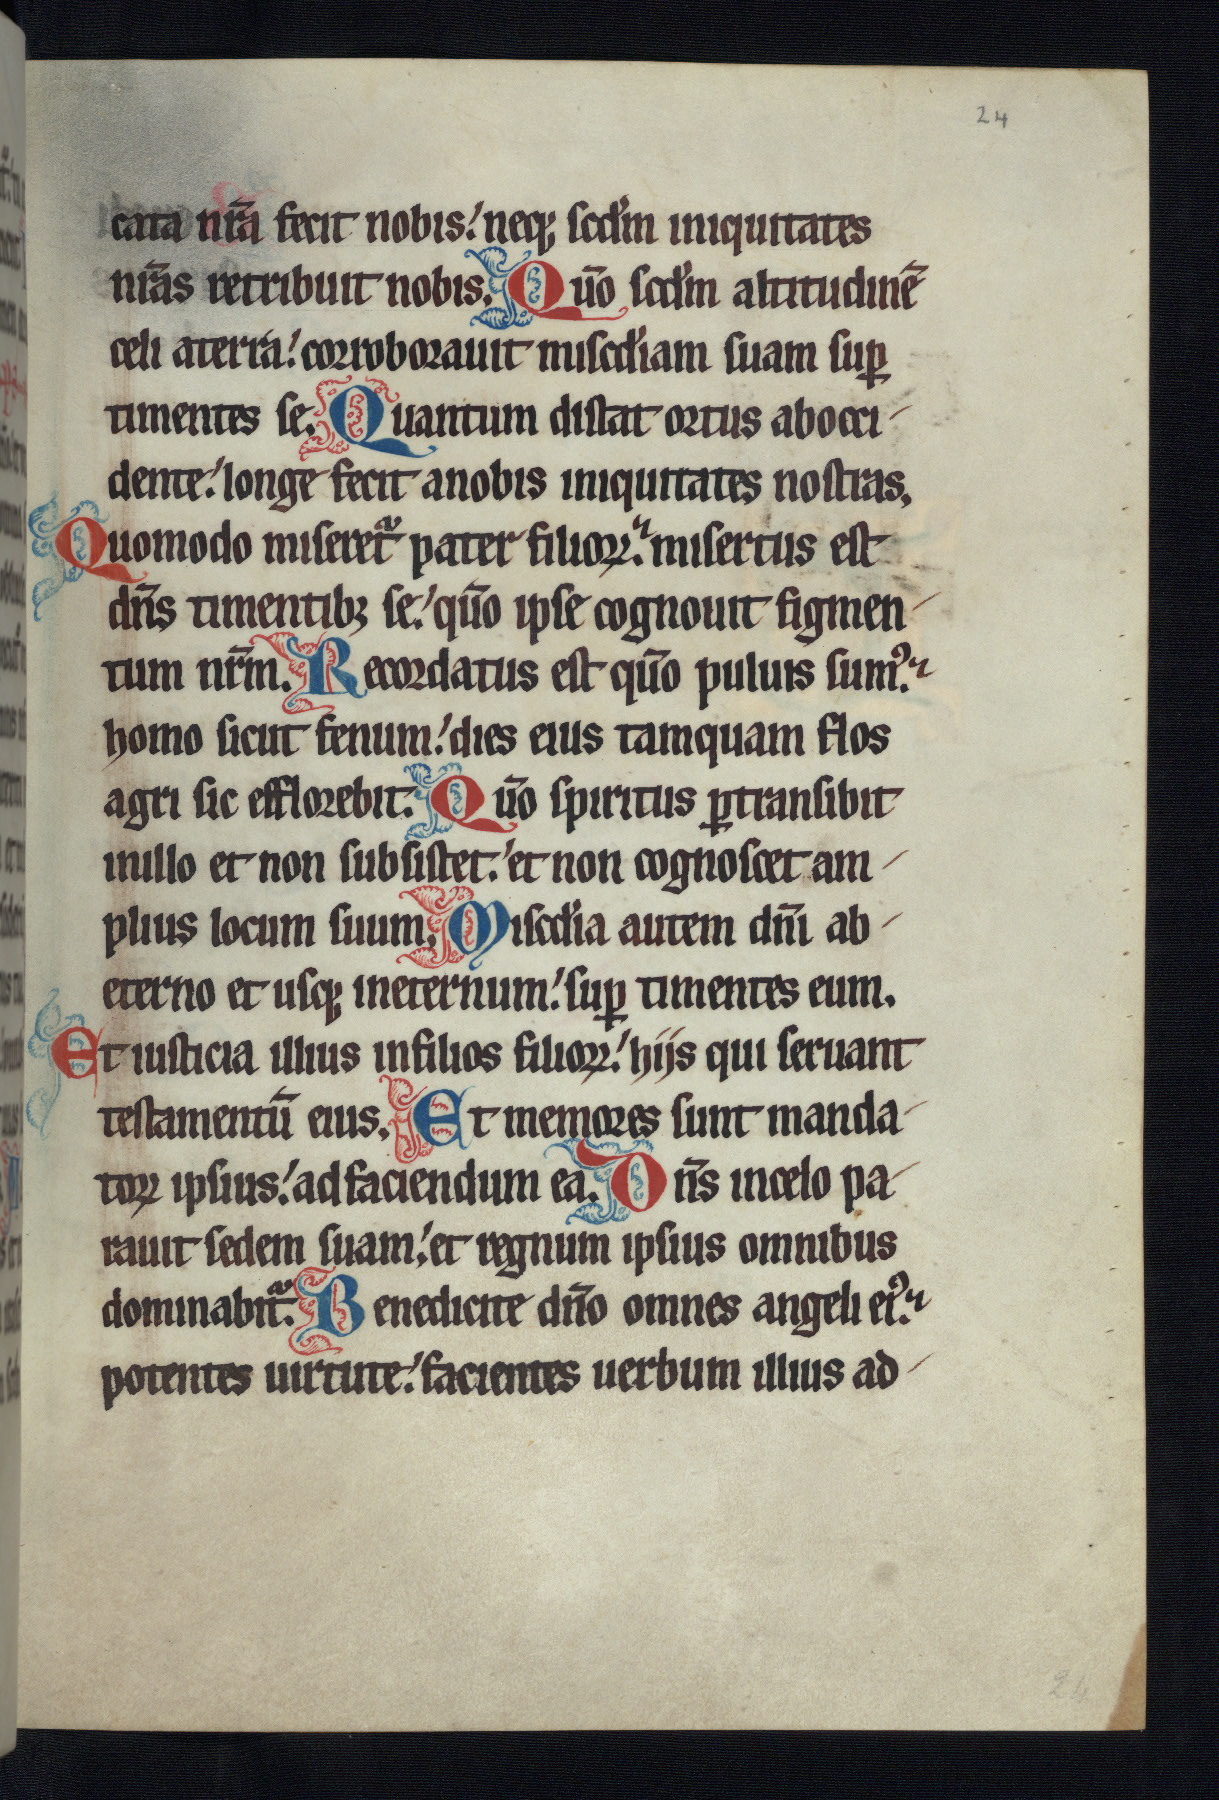 24
cata nr̄a fecit nobis: neqꝫ scd̓m iniquitates
nr̄as retribuit nobis. Quō scd̓m altitudinē
celi aterra: corroborauit misc̓diam suam sup̱
timentes se. Quantum distat ortus abocci-
dente: longe fecit anobis iniquitates nostras.
Quomodo miseret᷑ pater filioꝝ: misertus est
dn̄s timentibꝫ se: quō ipse cognouit figmen-
tum nr̄m. Recordatus est quō puluis sumꝰ:
homo sicut fenum: dies eius tamquam flos
agri sic efflorebit. Quō spiritus ꝑtransibit
inillo et non subsistet: et non cognoscet am-
plius locum suum. Misc̓dia autem dn̄i ab-
eterno et usqꝫ ineternum: suꝑ timentes eum.
Et iusticia illius infilios filioꝝ: hijs qui seruant
testamentū eius. Et memores sunt manda-
toꝝ ipsius: adfaciendum ea. Dn̄s incelo pa-
rauit sedem suam: et regnum ipsius omnibus
dominabit᷑. Benedicite dn̄o omnes angeli eiꝰ:
potentes uirtute: facientes uerbum illius ad-
24